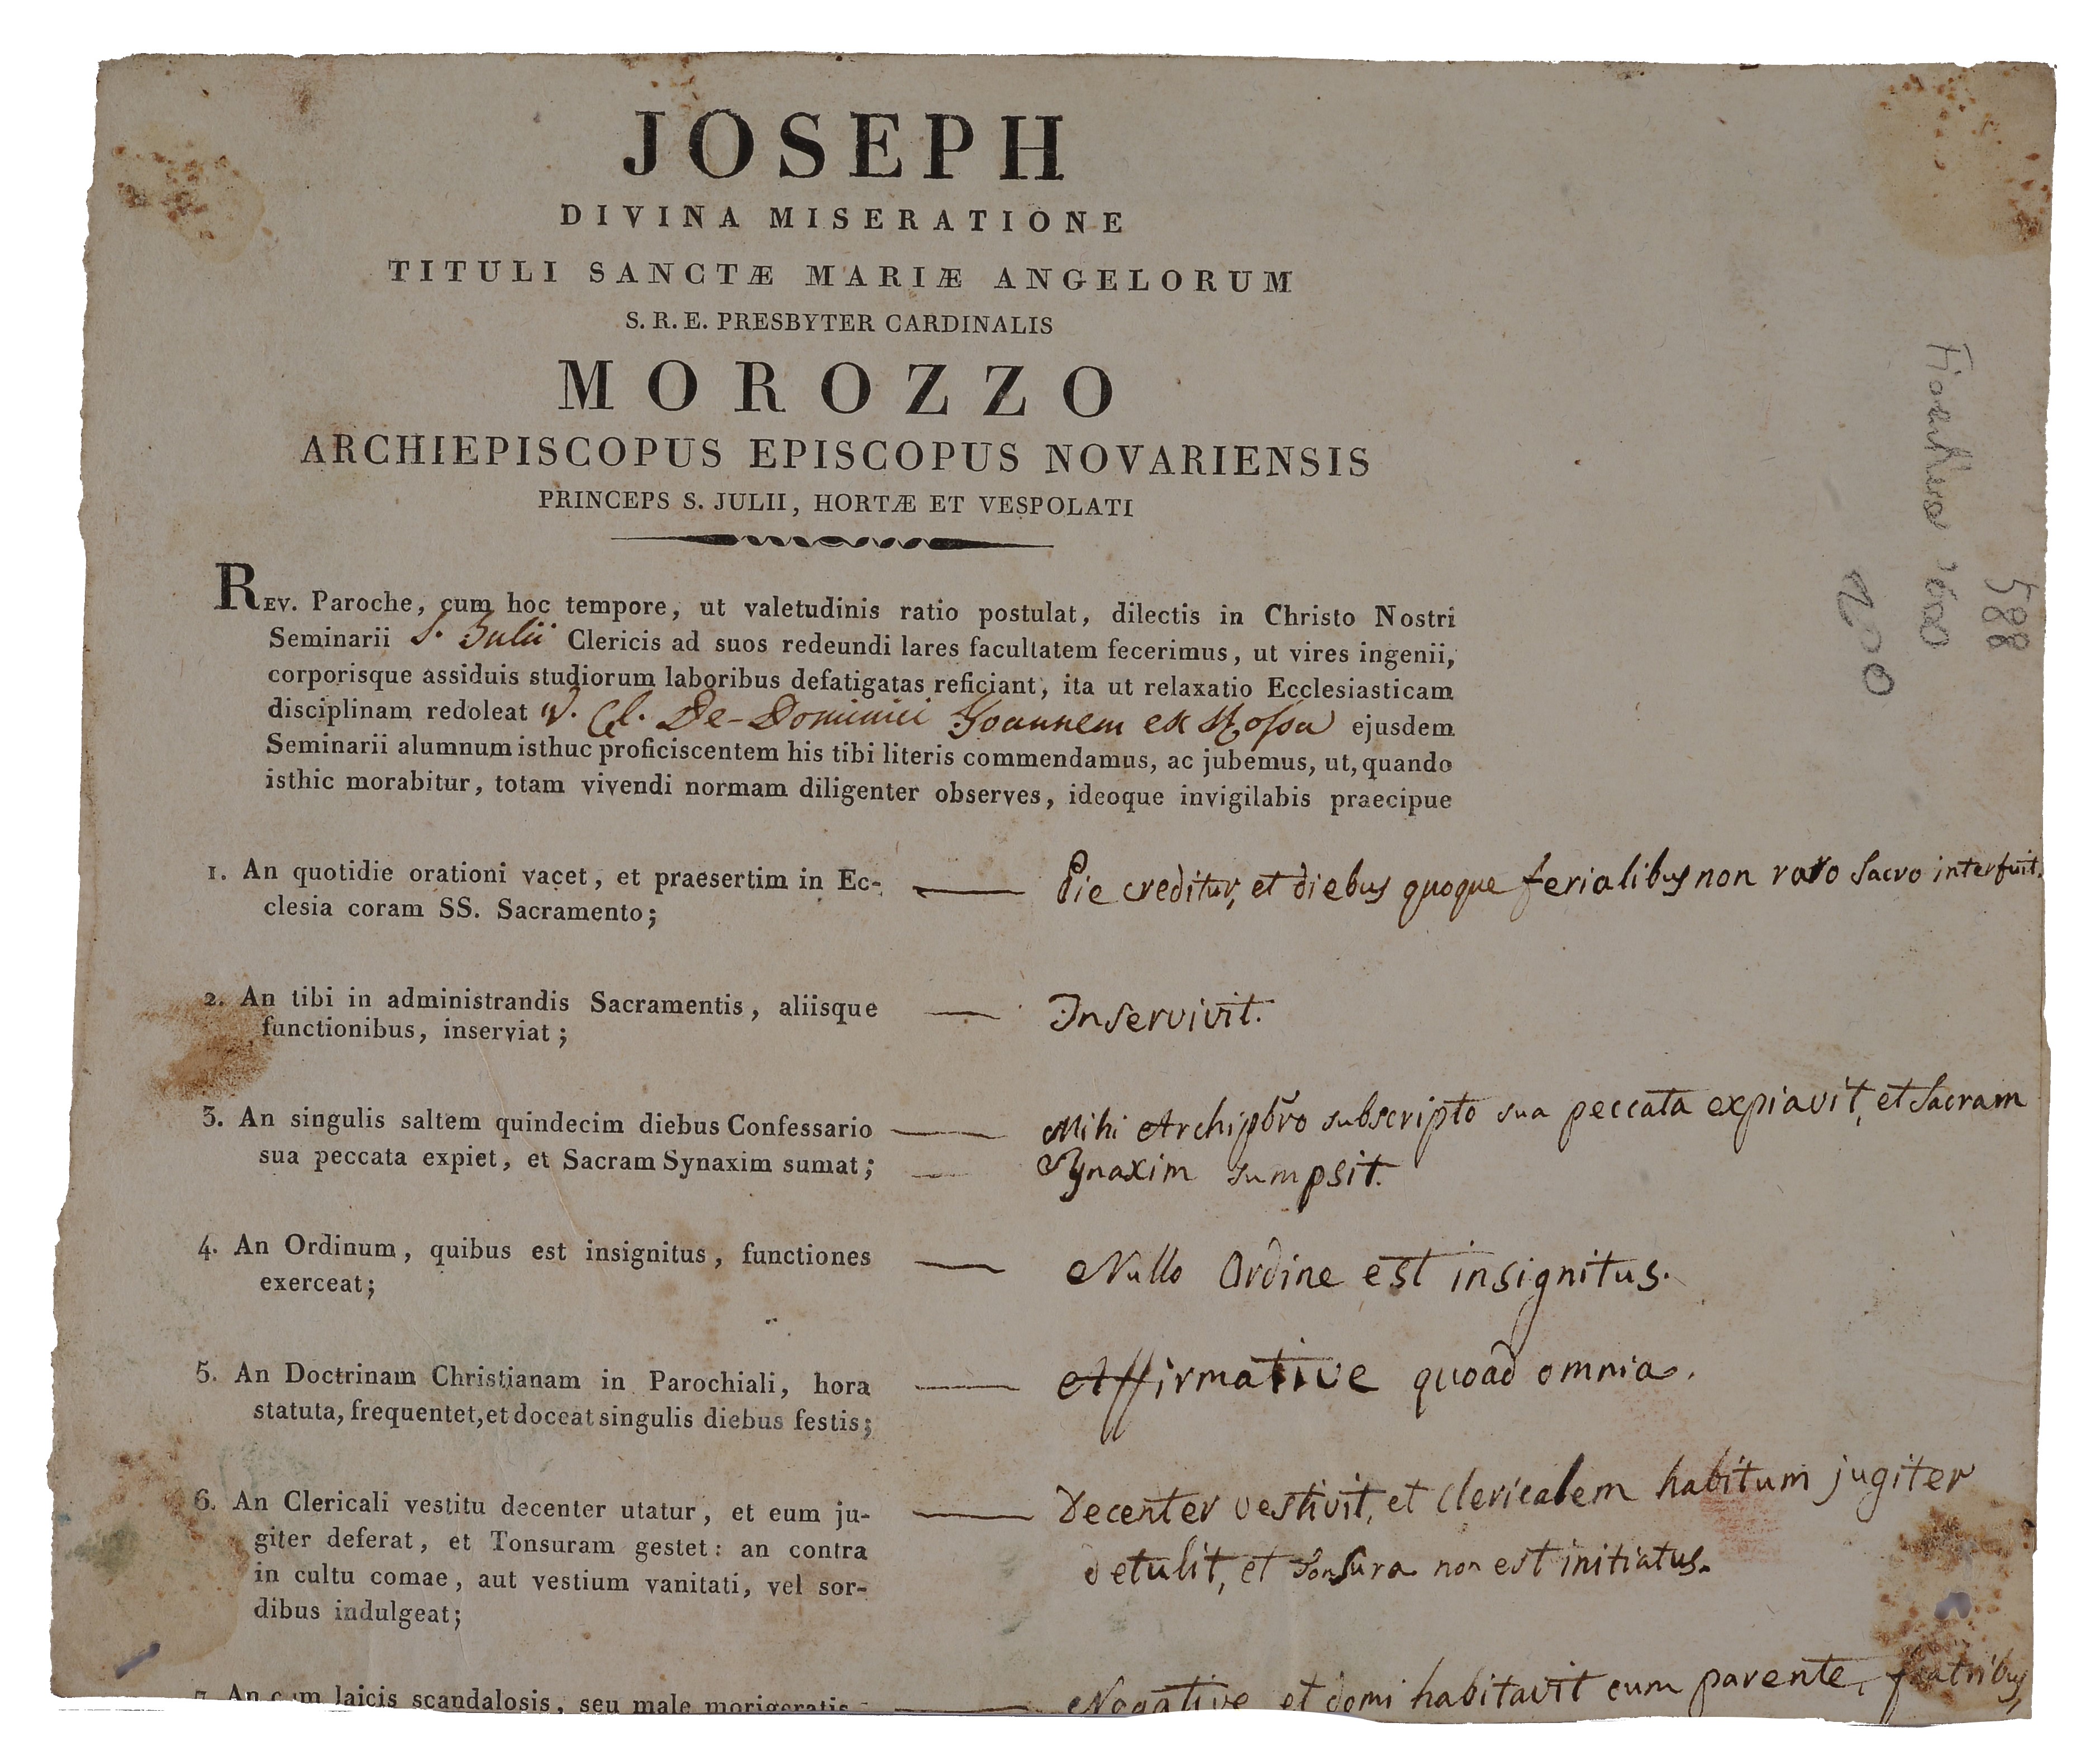 JOSEPH
DIVINA MISERATIONE
TITULI SANCTÆ MARIÆ ANGELORUM
S. R. E. PRESBYTER CARDINALIS
MOROZZO
ARCHIEPISCOPUS EPISCOPUS NOVARIENSIS
PRINCEPS S. JULII, HORTÆ ET VESPOLATI
REV. Paroche, cum hoc tempore, ut valetudinis ratio postulat, dilectis in Christo Nostri
Seminarii S. Julii Clericis ad suos redeundi lares facultatem fecerimus, ut vires ingenii,
corporisque assiduis studiorum laboribus defatigatas reficiant, ita ut relaxatio Ecclesiasticam
disciplinam redoleat V. Cl. De-Dominici Joannem ex Rossa ejusdem
Seminarii alumnum isthuc proficiscentem his tibi literis commendamus, ac jubemus, ut, quando
isthic morabitur, totam vivendi normam diligenter observes, ideoque invigilabis praecipue
1. An quotidie orationi vacet, et praesertim in Ec- — Pie creditur, et diebus quoque ferialibus non raro Sacro interfuit.
clesia coram SS. Sacramento;
2. An tibi in administrandis Sacramentis, aliisque — Inservivit.
functionibus, inserviat;
3. An singulis saltem quindecim diebus Confessario — Mihi Archipbro subscripto sua peccata expiavit, et Sacram
sua peccata expiet, et Sacram Synaxim sumat; — Synaxim sumpsit.
4. An Ordinum, quibus est insignitus, functiones — Nullo Ordine est insignitus.
exerceat;
5. An Doctrinam Christianam in Parochiali, hora — Affirmative quoad omnia.
statuta, frequentet, et doceat singulis diebus festis;
6. An Clericali vestitu decenter utatur, et eum ju- — Decenter vestivit, et clericalem habitum jugiter
giter deferat, et Tonsuram gestet: an contra detulit, et Tonsura non est initiatus.
in cultu comae, aut vestium vanitati, vel sor-
dibus indulgeat;
7. An cum laicis scandalosis, seu male morigeratis — Negative et domi habitavit cum parente, fratribus,
588
200